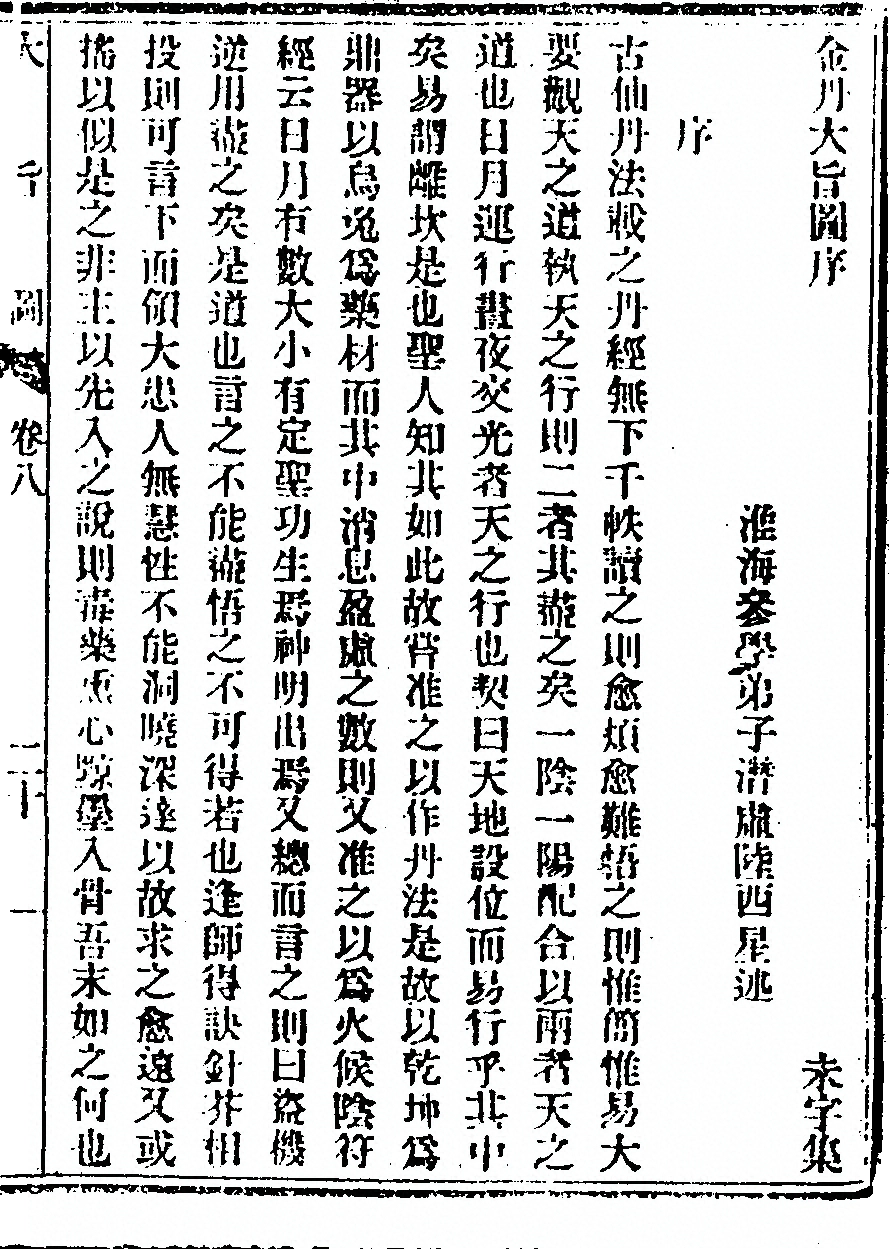 金丹大旨圖序　未字集
淮海參學弟子潛虛陸西星述
序
古仙丹法載之丹經無下千帙讀之則愈煩愈難悟之則惟簡惟易大
要觀天之道執天之行則二者其盡之矣一陰一陽配合以兩者天之
道也日月運行晝夜交光者天之行也契曰天地設位而易行乎其中
矣易謂離坎是也聖人知其如此故嘗准之以作丹法是故以乾坤爲
鼎器以烏兎爲藥材而其中消息盈虛之數則又准之以爲火候陰符
經云日月有數大小有定聖功生焉神明出焉又總而言之則曰盜機
逆用盡之矣是道也言之不能盡悟之不可得若也逢師得訣針芥相
投則可言下而領大忠人無慧性不能洞曉深達以故求之愈遠又或
搖以似是之非主以先入之說則毒藥熏心隃墨入骨吾末如之何也
大旨圖　卷八　二十一